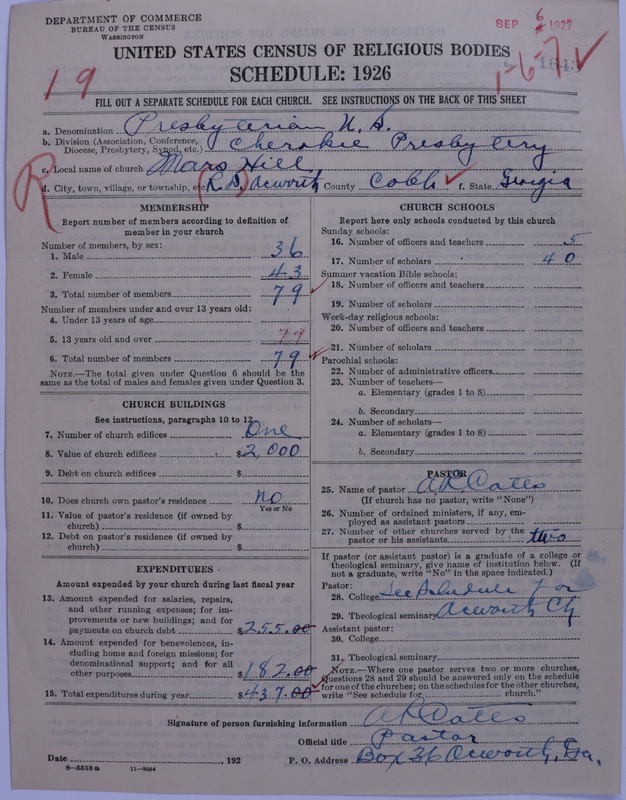 DEPARTMENT OF COMMERCE
BUREAU OF THE CENSUS
WASHINGTON
SEP 6 1927
UNITED STATES CENSUS OF RELIGIOUS BODIES
SCHEDULE: 1926
19
1-6-7 ✓
FILL OUT A SEPARATE SCHEDULE FOR EACH CHURCH. SEE INSTRUCTIONS ON THE BACK OF THIS SHEET
a. Denomination Presbyterian U.S.
b. Division (Association, Conference, Diocese, Presbytery, Synod, etc.) Cherokee Presbytery
c. Local name of church Mars Hill
R
d. City, town, village, or township, etc. (R.D.) Acworth County Cobb ✓ f. State Georgia
MEMBERSHIP
Report number of members according to definition of
member in your church
Number of members, by sex:
1. Male 36
2. Female 43
3. Total number of members 79 ✓
Number of members under and over 13 years old:
4. Under 13 years of age
5. 13 years old and over 79
6. Total number of members 79 ✓
NOTE.—The total given under Question 6 should be the
same as the total of males and females given under Question 3.
CHURCH BUILDINGS
See instructions, paragraphs 10 to 12
7. Number of church edifices One
8. Value of church edifices $2,000
9. Debt on church edifices $
10. Does church own pastor's residence no
Yes or No
11. Value of pastor's residence (if owned by
church) $
12. Debt on pastor's residence (if owned by
church) $
EXPENDITURES
Amount expended by your church during last fiscal year
13. Amount expended for salaries, repairs,
and other running expenses; for im-
provements or new buildings; and for
payments on church debt $255.00
14. Amount expended for benevolences, in-
cluding home and foreign missions; for
denominational support; and for all
other purposes 182.00
15. Total expenditures during year $437.00 ✓
CHURCH SCHOOLS
Report here only schools conducted by this church
Sunday schools:
16. Number of officers and teachers 5
17. Number of scholars 40
Summer vacation Bible schools:
18. Number of officers and teachers
19. Number of scholars
Week-day religious schools:
20. Number of officers and teachers
21. Number of scholars
Parochial schools:
22. Number of administrative officers
23. Number of teachers—
a. Elementary (grades 1 to 8)
b. Secondary
24. Number of scholars—
a. Elementary (grades 1 to 8)
b. Secondary
PASTOR
25. Name of pastor A R Cates
(If church has no pastor, write "None")
26. Number of ordained ministers, if any, em-
ployed as assistant pastors
27. Number of other churches served by the
pastor or his assistants two
If pastor (or assistant pastor) is a graduate of a college or
theological seminary, give name of institution below. (If
not a graduate, write "No" in the space indicated.)
Pastor:
28. College See schedule for
29. Theological seminary Acworth Ch
Assistant pastor:
30. College
31. Theological seminary
NOTE.—Where one pastor serves two or more churches,
Questions 28 and 29 should be answered only on the schedule
for one of the churches; on the schedules for the other churches,
write "See schedule for church."
Signature of person furnishing information A R Cates
Official title Pastor
Date , 192 P. O. Address Box 36 Acworth, Ga.
8—5518 a 11—9054